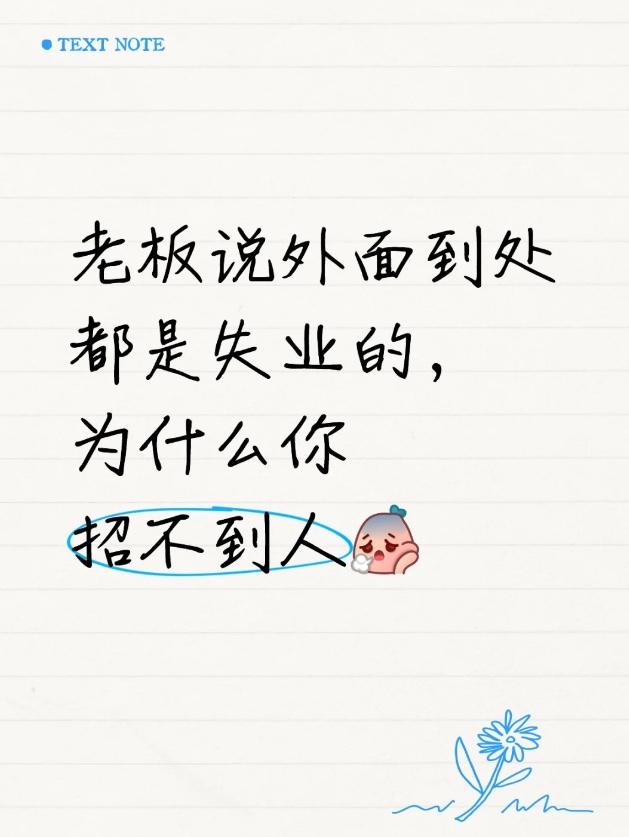 TEXT NOTE
老板说外面到处
都是失业的，
为什么你
招不到人